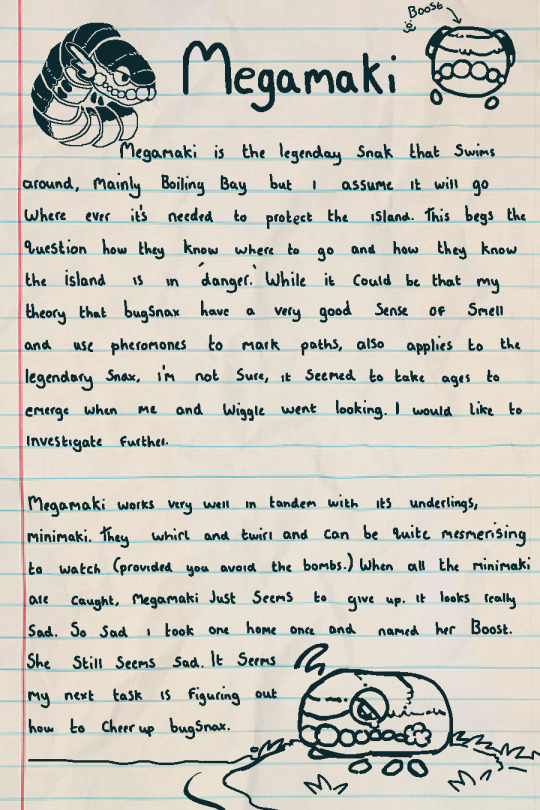 Boost
Megamaki
Megamaki is the legendary Snak that Swims
around, Mainly Boiling Bay but I assume it will go
Where ever it's needed to protect the island. This begs the
question how they know where to go and how they know
the island is in 'danger.' While it could be that my
theory that bugsnax have a very good Sense of Smell
and use pheromones to mark paths, also applies to the
legendary Snax, i'm not Sure, it Seemed to take ages to
emerge when me and Wiggle went looking. I would like to
investigate further.
Megamaki works very well in tandem with its underlings,
minimaki. They whirl and twirl and can be quite mesmerising
to watch (provided you avoid the bombs.) When all the minimaki
are caught, Megamaki Just Seems to give up. it looks really
Sad. So Sad i took one home once and named her Boost.
She Still Seems Sad. It Seems
my next task is figuring out
how to Cheer up bugsnax.